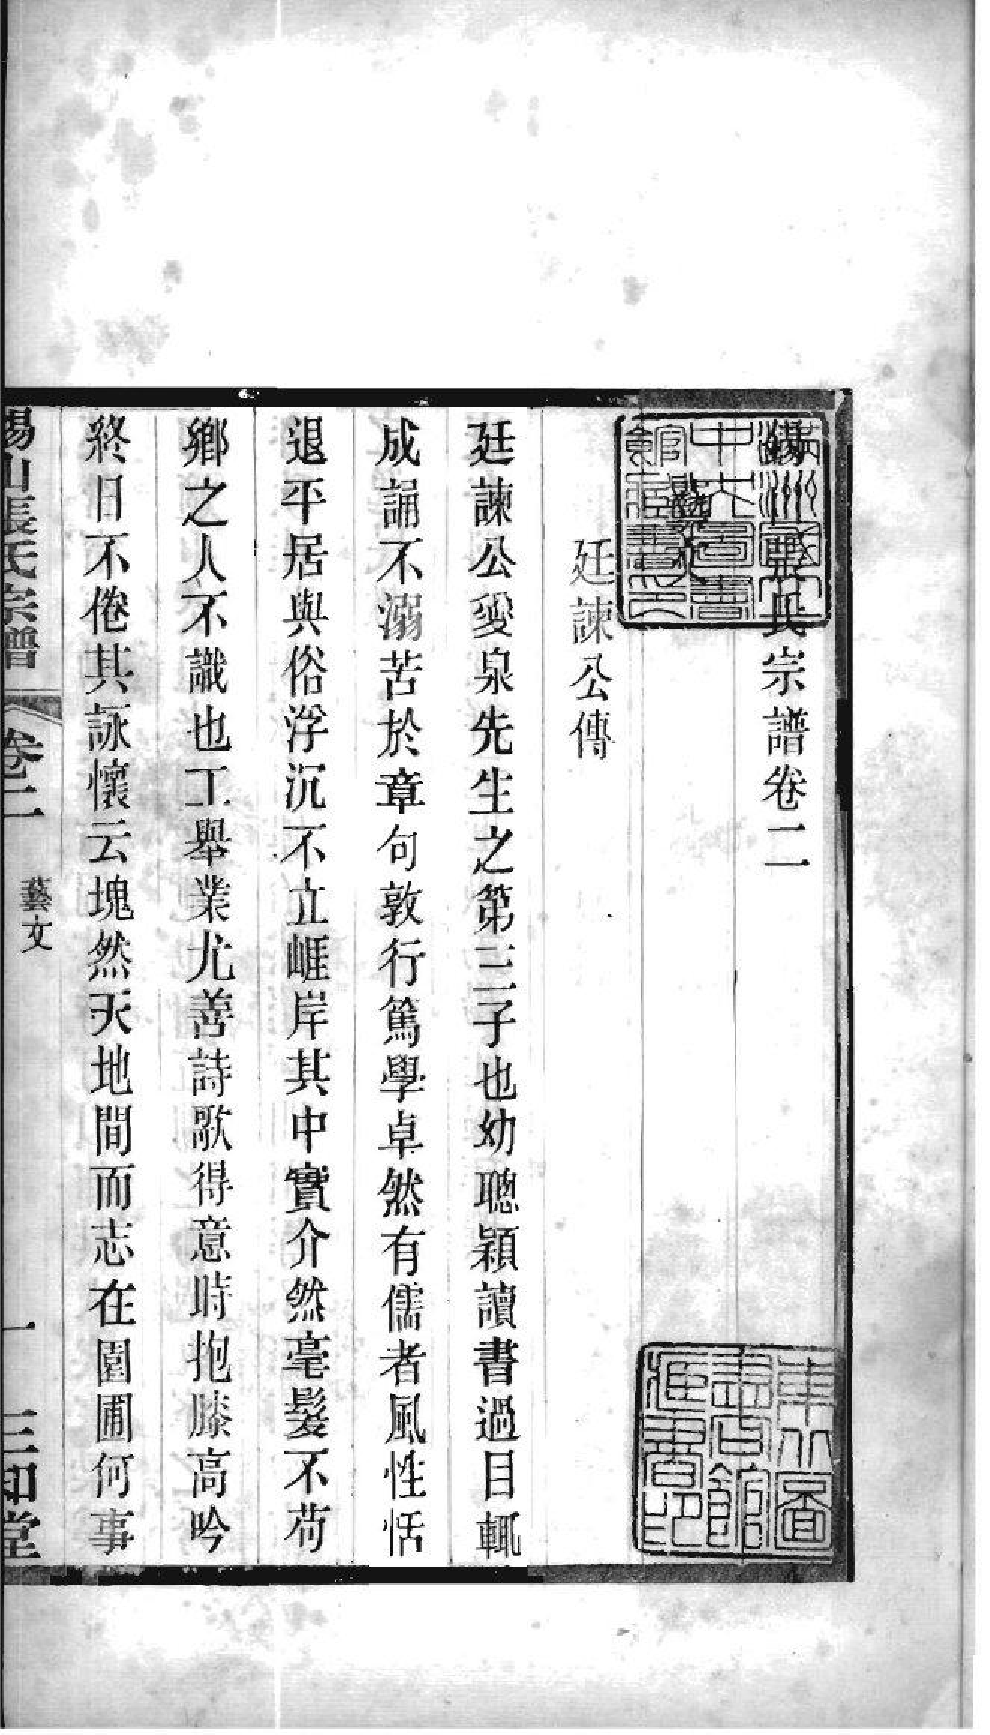 錫山張氏宗譜卷二
藝文
廷諫公傳
廷諫公愛泉先生之第三子也幼聰穎讀書過目輒
成誦不溺苦於章句敦行篤學卓然有儒者風性恬
退平居與俗浮沉不立崕岸其中實介然毫髮不苟
鄉之人不識也工舉業尤善詩歌得意時抱膝高吟
終日不倦其詠懷云塊然天地間而志在園圃何事
錫山張氏宗譜 卷二 藝文 一 三知堂